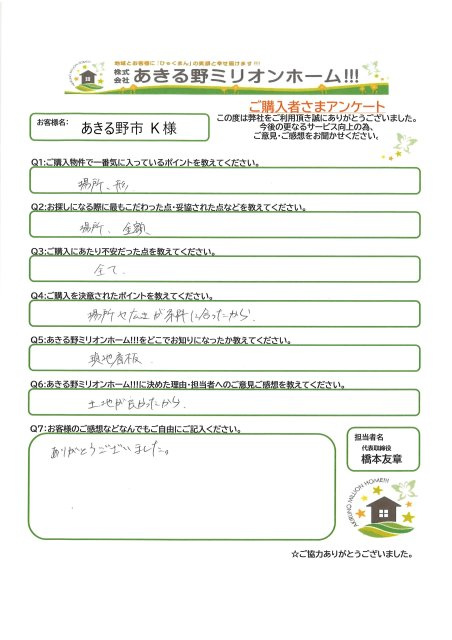 地域とお客様に「ひゃくまん」の笑顔と幸せ届けます!!!
株式会社 あきる野ミリオンホーム!!!
ご購入者さまアンケート
この度は弊社をご利用頂き誠にありがとうございました。
今後の更なるサービス向上の為、
ご意見・ご感想をお聞かせください。
お客様名：
あきる野市 K 様
Q1:ご購入物件で一番気に入っているポイントを教えてください。
場所、形
Q2:お探しになる際に最もこだわった点・妥協された点などを教えてください。
場所、金額
Q3:ご購入にあたり不安だった点を教えてください。
全て.
Q4:ご購入を決意されたポイントを教えてください。
場所や広さが条件に合ったから.
Q5:あきる野ミリオンホーム!!!をどこでお知りになったか教えてください。
現地看板
Q6:あきる野ミリオンホーム!!!に決めた理由・担当者へのご意見ご感想を教えてください。
土地が良かったから.
Q7:お客様のご感想などなんでもご自由にご記入ください。
ありがとうございました。
担当者名
代表取締役
橋本友章
AKIRUNO MILLION HOME!!!
☆ご協力ありがとうございました。